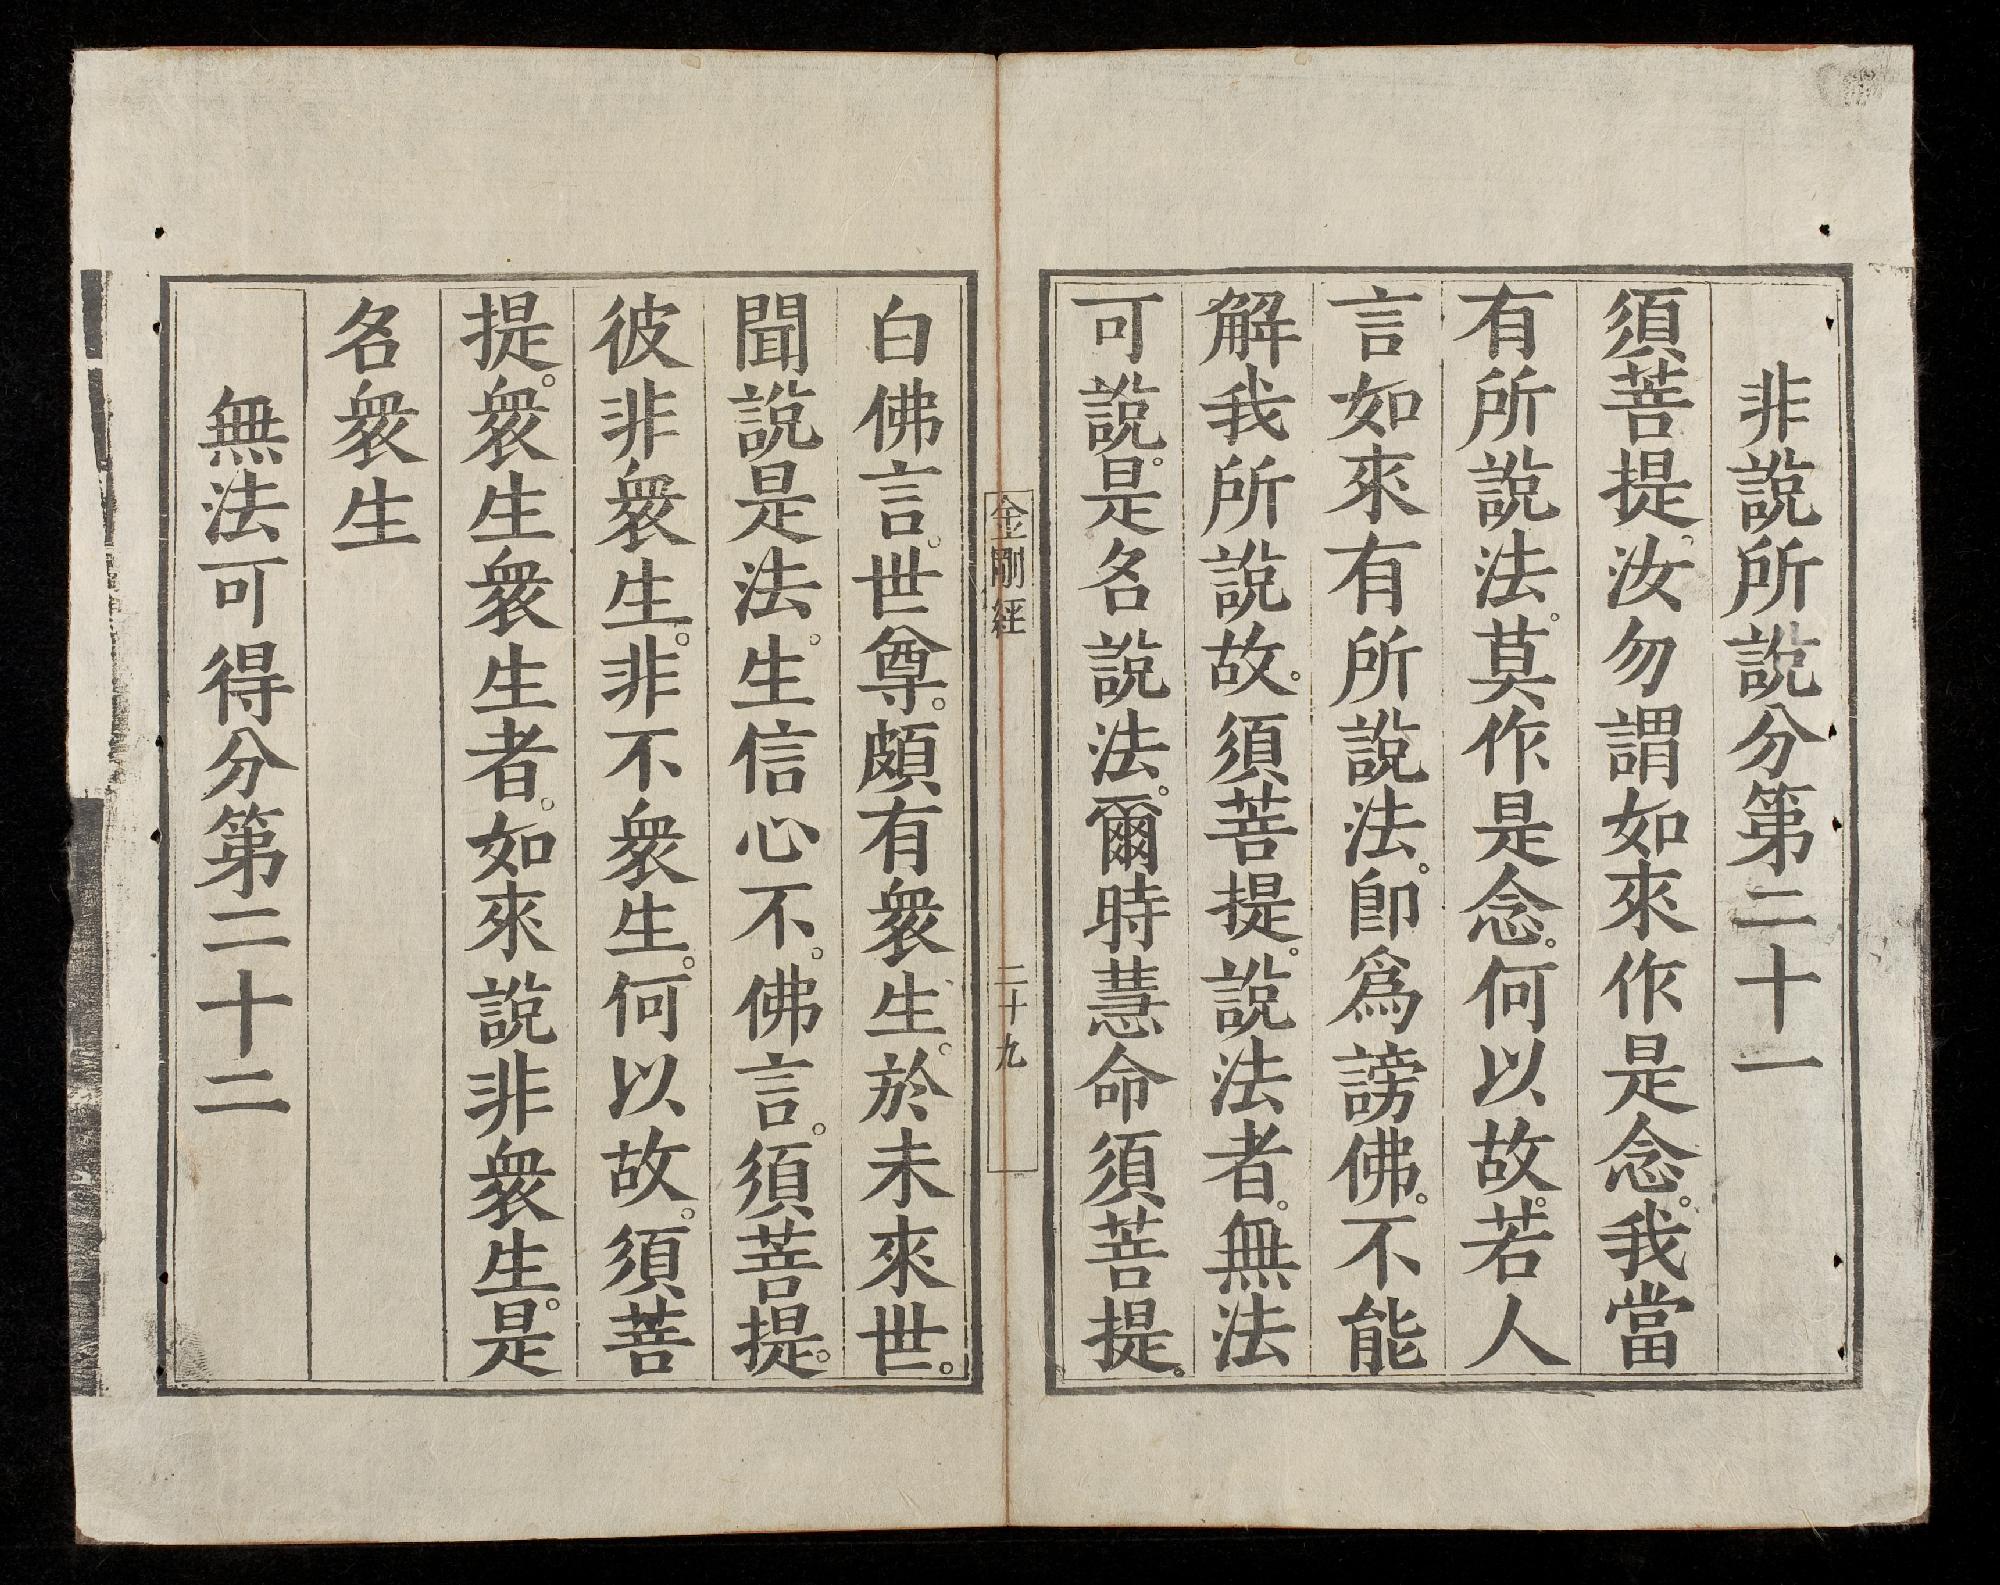 非說所說分第二十一
須菩提。汝勿謂如來作是念。我當
有所說法。莫作是念。何以故。若人
言如來有所說法。卽爲謗佛。不能
解我所說故。須菩提。說法者。無法
可說。是名說法。爾時慧命須菩提。
金剛經
二十九
白佛言。世尊。頗有衆生。於未來世。
聞說是法。生信心不。佛言。須菩提。
彼非衆生。非不衆生。何以故。須菩
提。衆生衆生者。如來說非衆生。是
名衆生
無法可得分第二十二